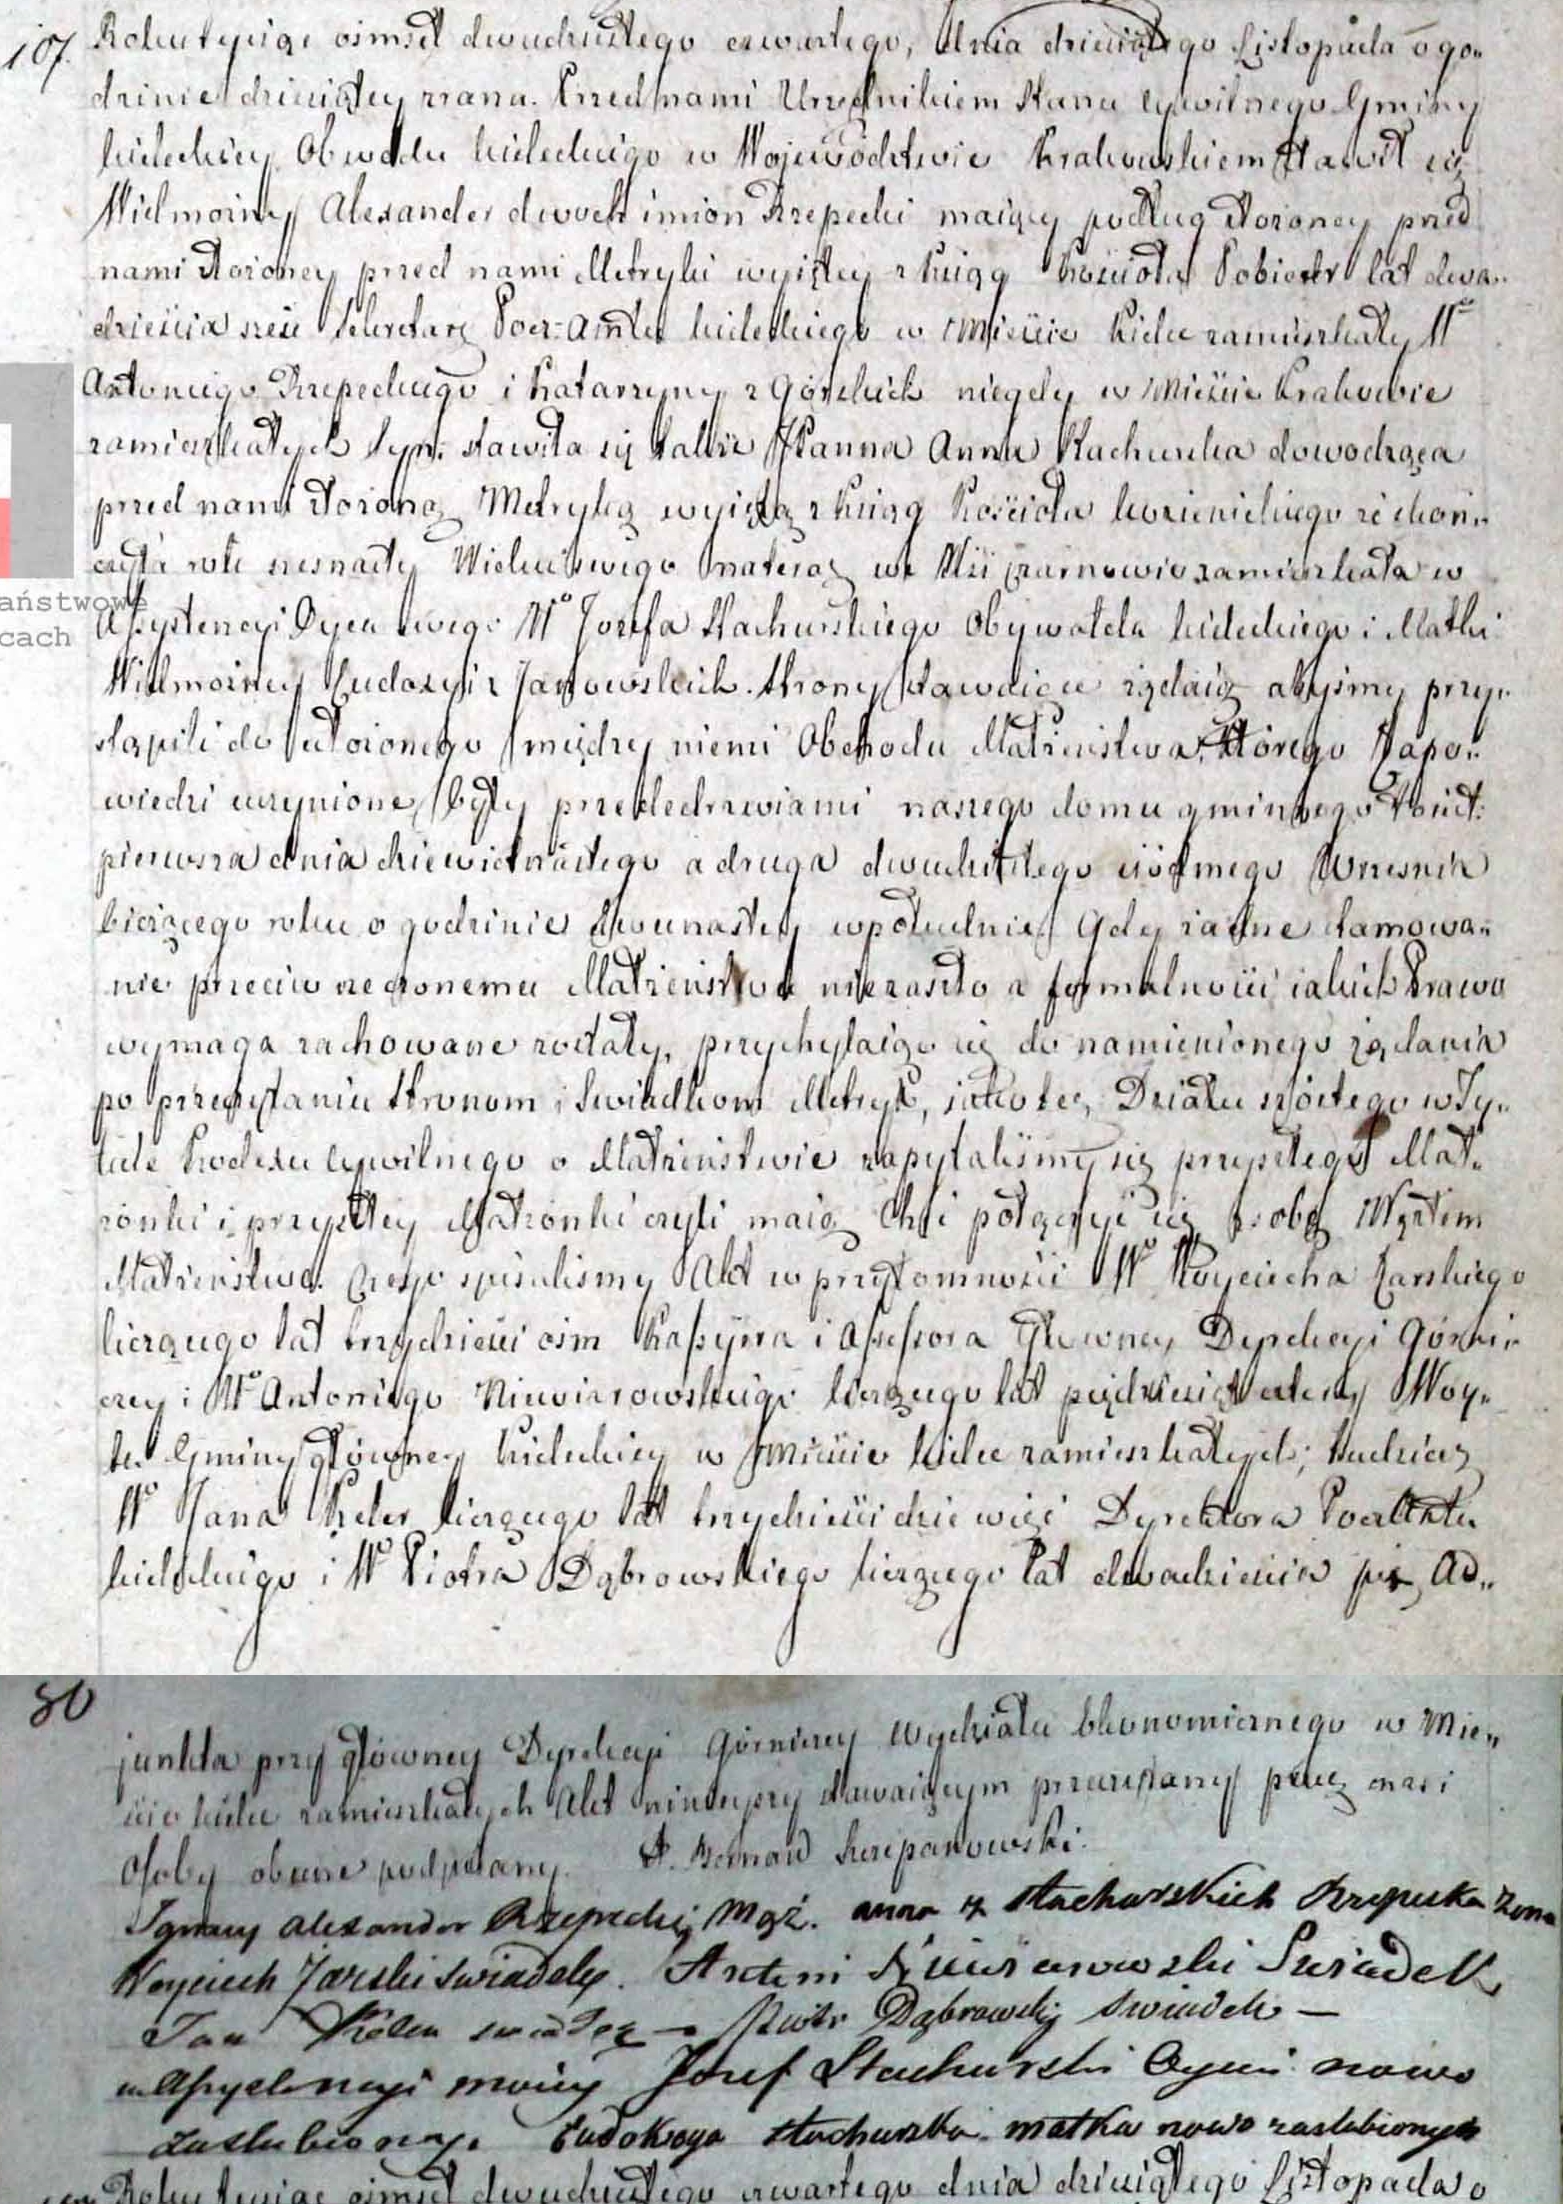 107. Roku tysiąc ośmset dwudziestego czwartego, dnia dziewiątego Listopada o go„
dzinie dziewiątey zrana. Przed nami Urzędnikiem Stanu cywilnego Gminy
kieleckiey Obwodu kieleckiego w Województwie Krakowskiem stawił się
Wielmożny Alexander dwoch imion Rzepecki maiący podług złożoney przed
nami złożoney przed nami Metryki wyiętey z Xiąg Kościoła lat dwa„
dzieścia sześć Sekretarz Poczt-Amtu kieleckiego w Mieście Kielce zamieszkały Wº
Antoniego Rzepeckiego i Katarzyny z Gorskich niegdy w Mieście Krakowie
zamieszkałych Syn. stawiła się także Panna Anna Stachurska dowodząca
przed nami złożoną Metryką wyiętą z Xiąg Kościoła kozienickiego że skoń„
czyła rok szesnasty Wieku swego na teraz we Wsi Czarnowie zamieszkała w
Assystencyi Oyca swego Wº Jozefa Stachurskiego Obywatela kieleckiego i Matki
Wielmożney Eudoxyi z Janowskich. Strony stawaiące żądaią abyśmy przy„
stąpili do ułożonego między niemi Obchodu Małżeństwa, którego Zapo„
wiedzi uczynione były przededrzwiami naszego domu gminnego to iest:
pierwsza dnia dziewietnastego a druga dwudziestego siódmego Wrzesnia
bieżącego roku o godzinie dwunastey wpołudnie Gdy żadne tamowa„
nie przeciw rzeczonemu Małżeństwu niezaszło a formalności iakich Prawo
wymaga zachowane zostały, przychylaiąc się do namienionego żądania
po przeczytaniu Stronom i Swiadkom Metryk, iakoteż Działu szóstego w Ty„
tule Kodexu cywilnego o Małżeństwie zapytaliśmy się przyszłego Mał„
żonka i przyszłey Małżonki czyli maią Chęć połączyć się z sobą Węzłem
Małżeństwa. Czego spisaliśmy Akt w przytomności Wº Woyciecha Żarskiego
liczącego lat trzydzieści ośm Kassyera i Assessora Głowney Dyrekcyi Górni„
czey i Wº Antoniego Niewiarowskiego liczącego lat pięćdziesiąt cztery Woy„
ta Gminy głowney kieleckiey w Mieście kielce zamieszkałych; tudzież
Wº Jana Keler liczącego lat trzydzieści dziewięć Dyrektora PocztAmtu
kieleckiego i Wº Piotra Dąbrowskiego liczącego lat dwadzieścia pięć Ad„
80
junkta przy głowney Dyrekcyi Górniczey Wydziału Ekonomicznego w Mie„
ście kielce zamieszkałych Akt ninieyszy stawaiącym przeczytany przez nas i
Osoby obecne podpisany. X. Bernard Szczepanowski.
Ignacy Alexander Rzepecki Mąż. Anna z Stachurskich Rzepecka Żona
Woyciech Żarski swiadek. Antoni Niewiarowski Swiadek
Jan Keler swiadek — Piotr Dąbrowski Swiadek —
w Assystencyi moiey Jozef Stachurski Oyciec nowo
zaslubioney. Eudoksya Stachurska matka nowo zaslubionych
Roku tysiąc ośmset dwudziestego czwartego dnia dziewiątego Listopada o
aństwowe
cach